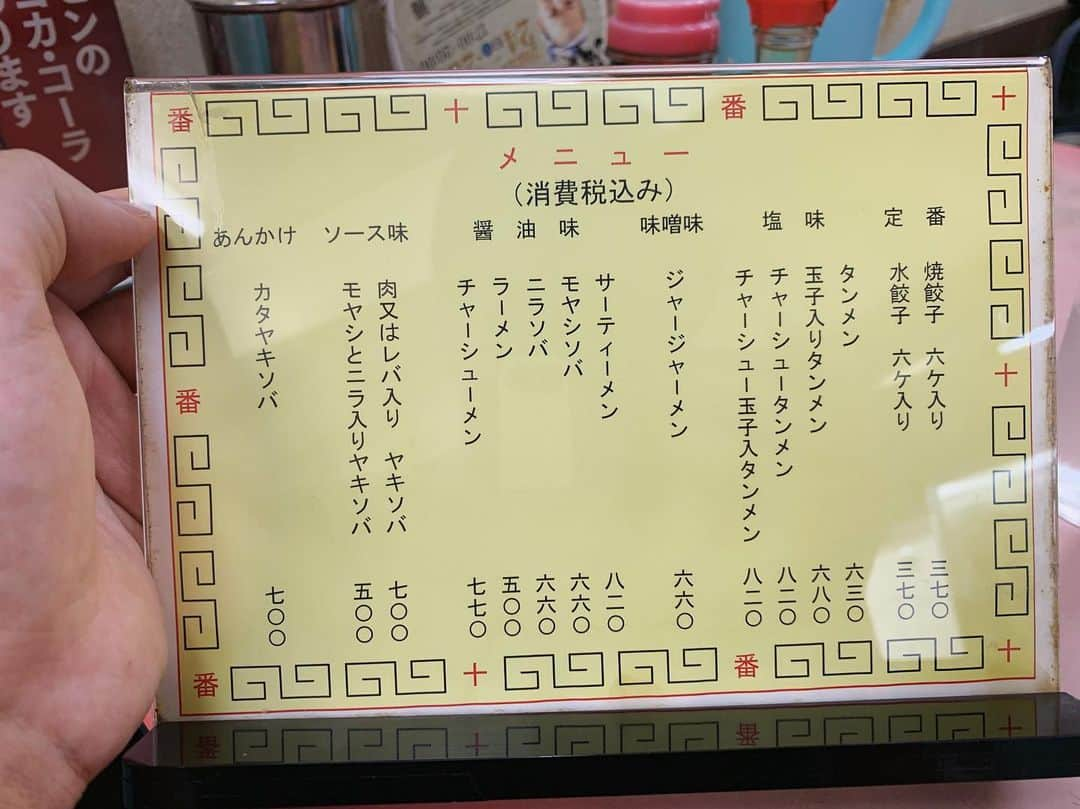 ンの
カ・コーラ
ります
番 十 番 十
メニュー
(消費税込み)
定番
焼餃子 六ケ入り 三七〇
水餃子 六ケ入り 三七〇
塩味
タンメン 六三〇
玉子入りタンメン 六八〇
チャーシュータンメン 八二〇
チャーシュー玉子入タンメン 八二〇
味噌味
ジャージャーメン 六六〇
醤油味
サーティーメン 八二〇
モヤシソバ 六六〇
ニラソバ 六六〇
ラーメン 五〇〇
チャーシューメン 七七〇
ソース味
肉又はレバ入り ヤキソバ 七〇〇
モヤシとニラ入りヤキソバ 五〇〇
あんかけ
カタヤキソバ 七〇〇
番
十
番 十 番 十